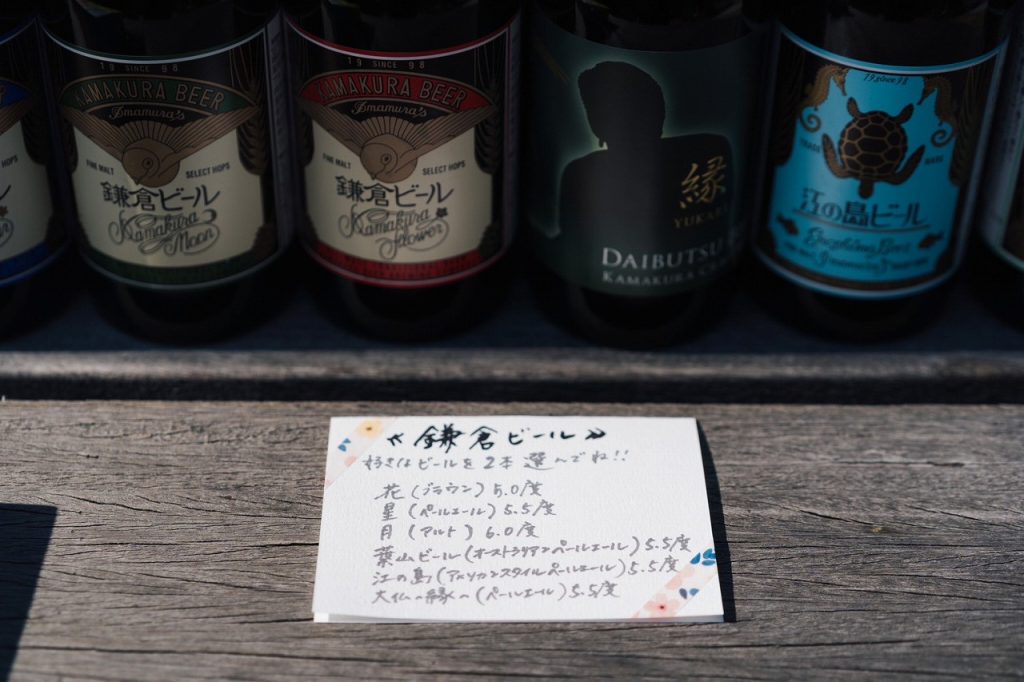 19 SINCE 98
KAMAKURA BEER
Amamura's
FINE MALT
SELECT HOPS
鎌倉ビール
Kamakura
Moon
19 SINCE 98
KAMAKURA BEER
Amamura's
FINE MALT
SELECT HOPS
鎌倉ビール
Kamakura
Flower
縁
YUKARI
DAIBUTSU
KAMAKURA
19 since 98
TRADE
MARK
江の島ビール
HOPS
≪鎌倉ビール≫
好きなビールを2本選んでね!!
花(ブラウン)5.0度
星(ペールエール)5.5度
月(アルト)6.0度
葉山ビール(オーストラリアンペールエール)5.5度
江の島(アメリカンスタイルペールエール)5.5度
大仏の縁(ペールエール)5.5度